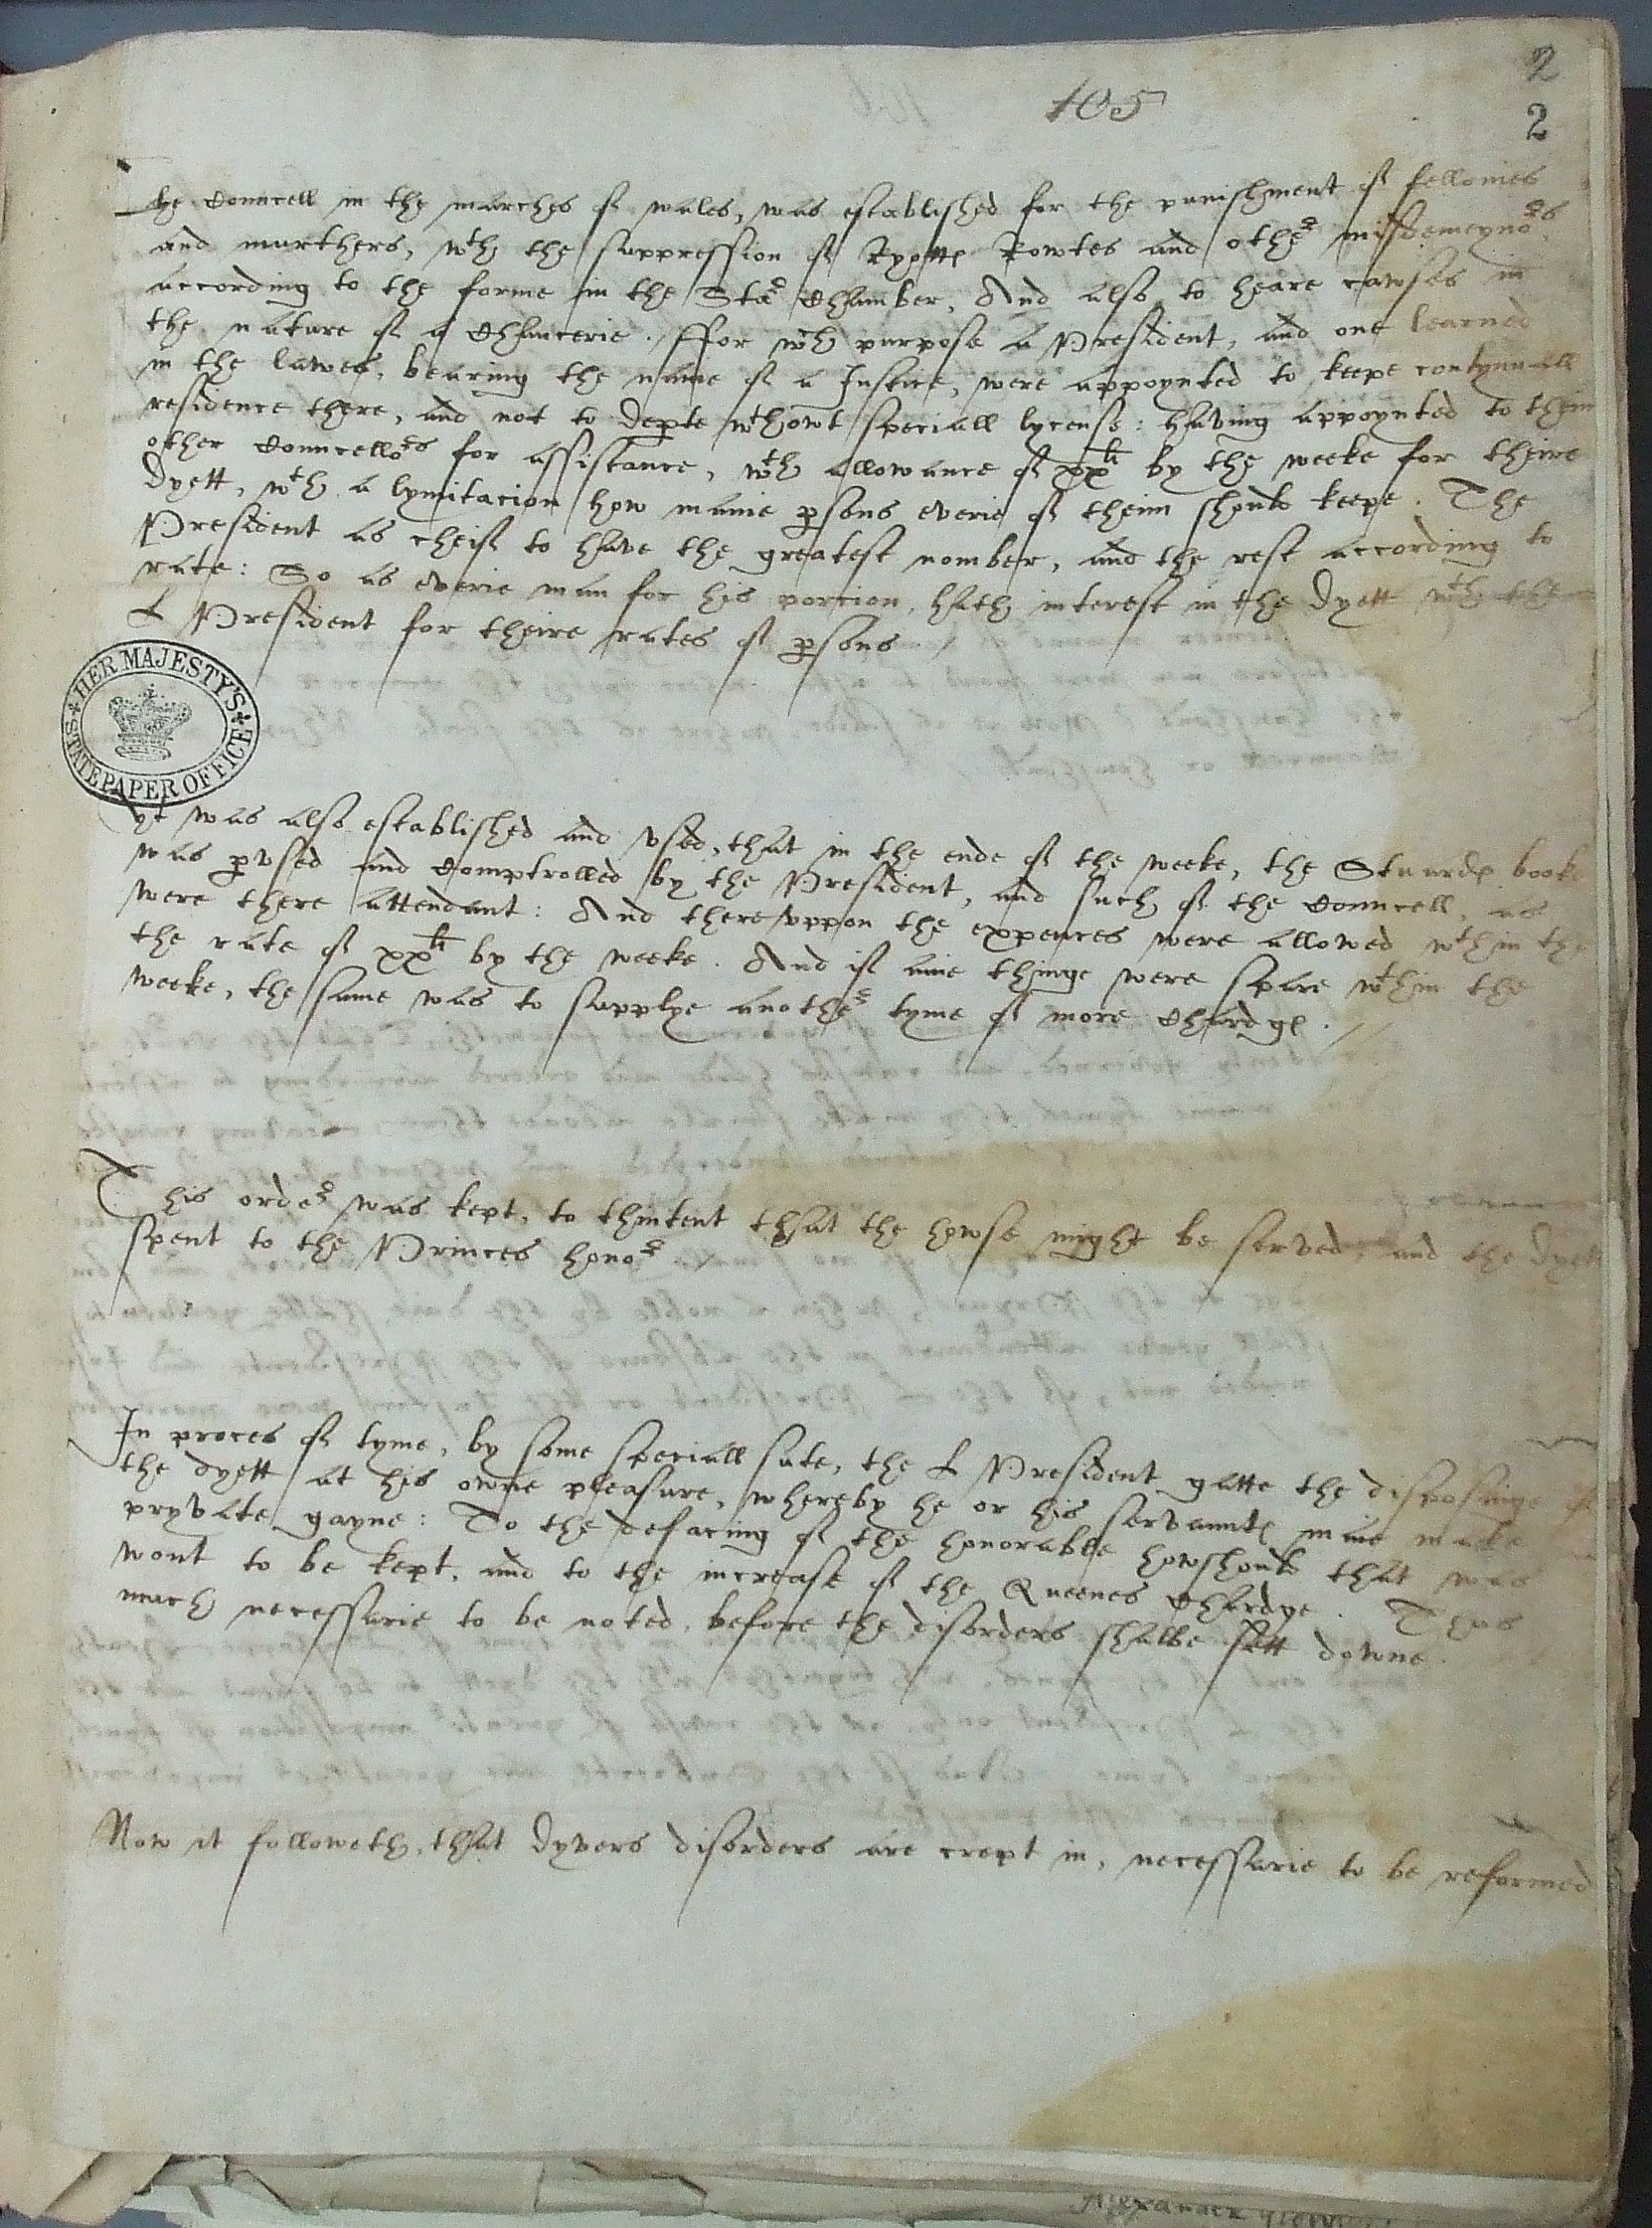 2
105
2
The Councell in the marches of wales, was established for the punishment of fellonies
and murthers, wth the suppression of Ryotts Rowtes and other misdemeynors
according to the forme in the Star Chamber, And also to heare cawses in
the nature of a Chauncerie. / ffor wch purpose a President, and one learned
in the lawes, bearing the name of a Justice, were appoynted to keepe contynuall
residence there, and not to depte wthowt speciall lycense: having appoynted to them
other Councellors for assistance, wth allowance of xxli by the weeke for theire
dyett, wth a lymitacion how manie psons everie of theim should keepe. The
President as cheif to have the greatest nomber, and the rest according to
rate: So as everie man for his porcion, hath interest in the dyett wth the
L President for theire rates of psons /
HER MAJESTY'S STATE PAPER OFFICE
yt was also established and vsed, that in the ende of the weeke, the Stuards booke
was pvsed and Comptrolled by the President, and such of the Councell, as
were there attendant: And therevppon the expences were allowed wthin the
the rate of xxli by the weeke. And if anie thinge were spare wthin the
weeke, the same was to supplye another tyme of more Chardge. //
This order was kept, to thintent that the howse might be served, and the dyett
spent to the Princes honor.
In proces of tyme, by some speciall sute, the L President gatte the disposinge of
the dyett at his owne pleasure, whereby he or his servaunts maie make
pryvate gayne: To the defacing of the honorable howshould that was
wont to be kept, and to the increase of the Queenes Chardge. Thus
much necessarie to be noted, before the disorders shalbe sett downe.
Now it followeth, that dyvers disorders are crept in, necessarie to be reformed